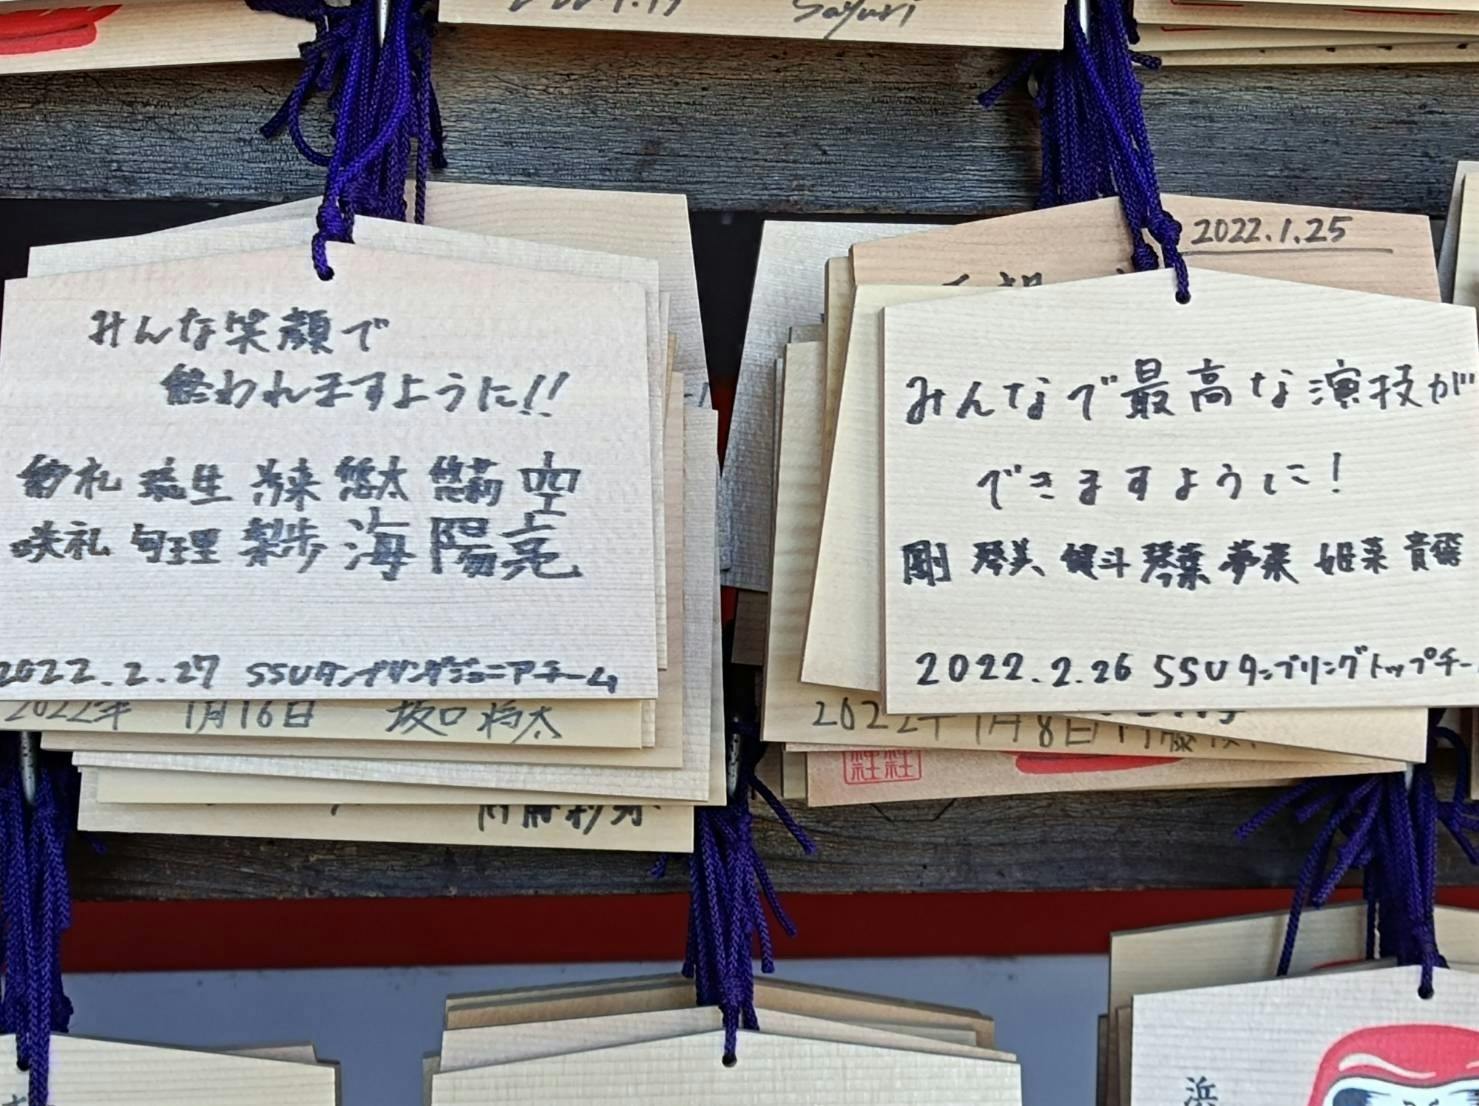 Sayuri
2022.1.25
みんな笑顔で
終われますように!!
琉生 悠太 空
咲礼 海 陽亮
2022.2.27 SSUタンブリングジュニアチーム
2022年 1月16日 坂口 将太
みんなで最高な演技が
できますように!
剛 琴美 健斗 琴葉 夢來 姫菜
2022.2.26 SSUタンブリングトップチー
2022年1月8日
浜